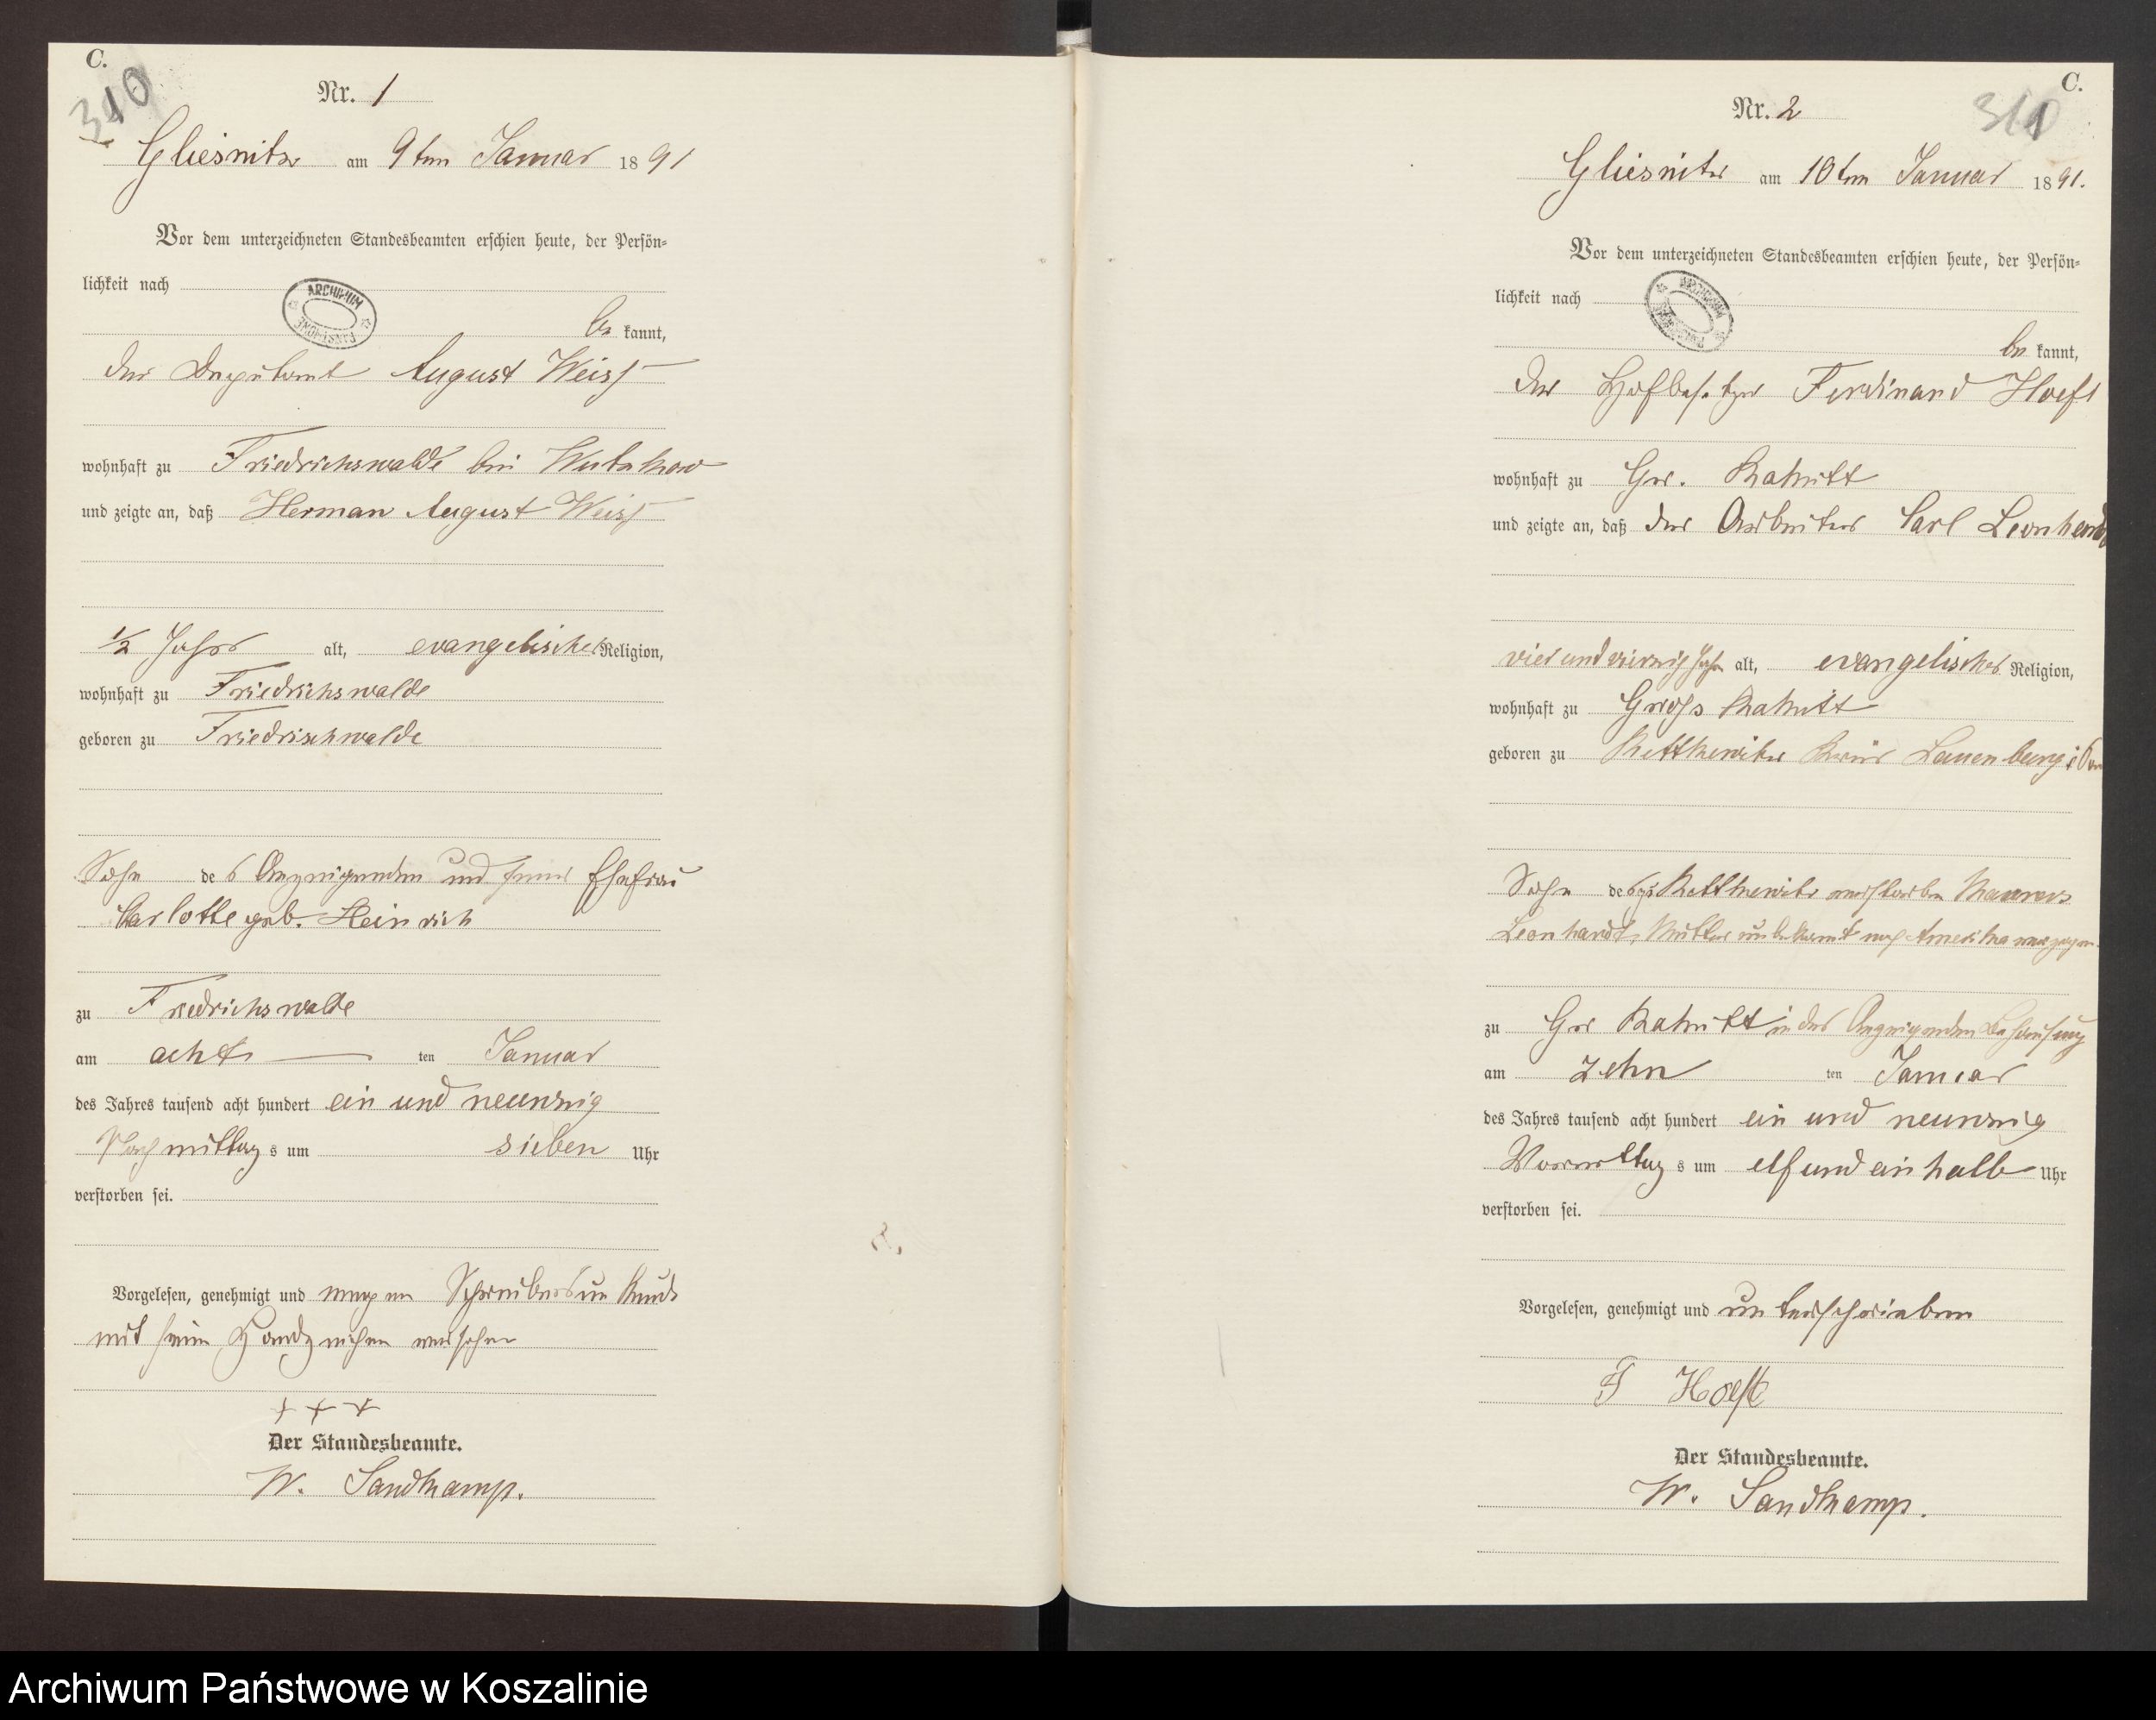 C.
310
Nr. 1
Gliesnitz am 9ten Januar 1891
Vor dem unterzeichneten Standesbeamten erschien heute, der Persön-
lichkeit nach
ARCHIWUM
PAŃSTWOWE
be kannt,
der Deputant August Weiss
wohnhaft zu Friedrichswalde bei Wutzkow
und zeigte an, daß Herman August Weiss
1/2 Jahr alt, evangelischer Religion,
wohnhaft zu Friedrichswalde
geboren zu Friedrischwalde
Sohn des Anzeigenden und seiner Ehefrau
Carlotte geb. Heinrich
zu Friedrichswalde
am achten Januar
des Jahres tausend acht hundert ein und neunzig
Nachmittags um sieben Uhr
verstorben sei.
Vorgelesen, genehmigt und wegen Schreibensunkunde
mit seinen Handzeichen versehen
+ + +
Der Standesbeamte.
W. Sandkamp.
C.
311
Nr. 2
Gliesnitz am 10ten Januar 1891.
Vor dem unterzeichneten Standesbeamten erschien heute, der Persön-
lichkeit nach
ARCHIWUM
be kannt,
der Hofbesitzer Ferdinand Hoeft
wohnhaft zu Gr. Rakitt
und zeigte an, daß der Arbeiter Carl Leonhardt
vier und vierzig Jahr alt, evangelischer Religion,
wohnhaft zu Gross Rakitt
geboren zu Rettkewitz Kreis Lauenburg i Pom
Sohn des zu Rettkewitz verstorben Maurers
Leonhardt, Mutter unbekannt nach Amerika
zu Gr Rakitt in des Anzeigenden Behausung
am zehn ten Januar
des Jahres tausend acht hundert ein und neunzig
Vormittags um elf und ein halb Uhr
verstorben sei.
Vorgelesen, genehmigt und unterschrieben
F Hoeft
Der Standesbeamte.
W. Sandkamp.
Archiwum Państwowe w Koszalinie